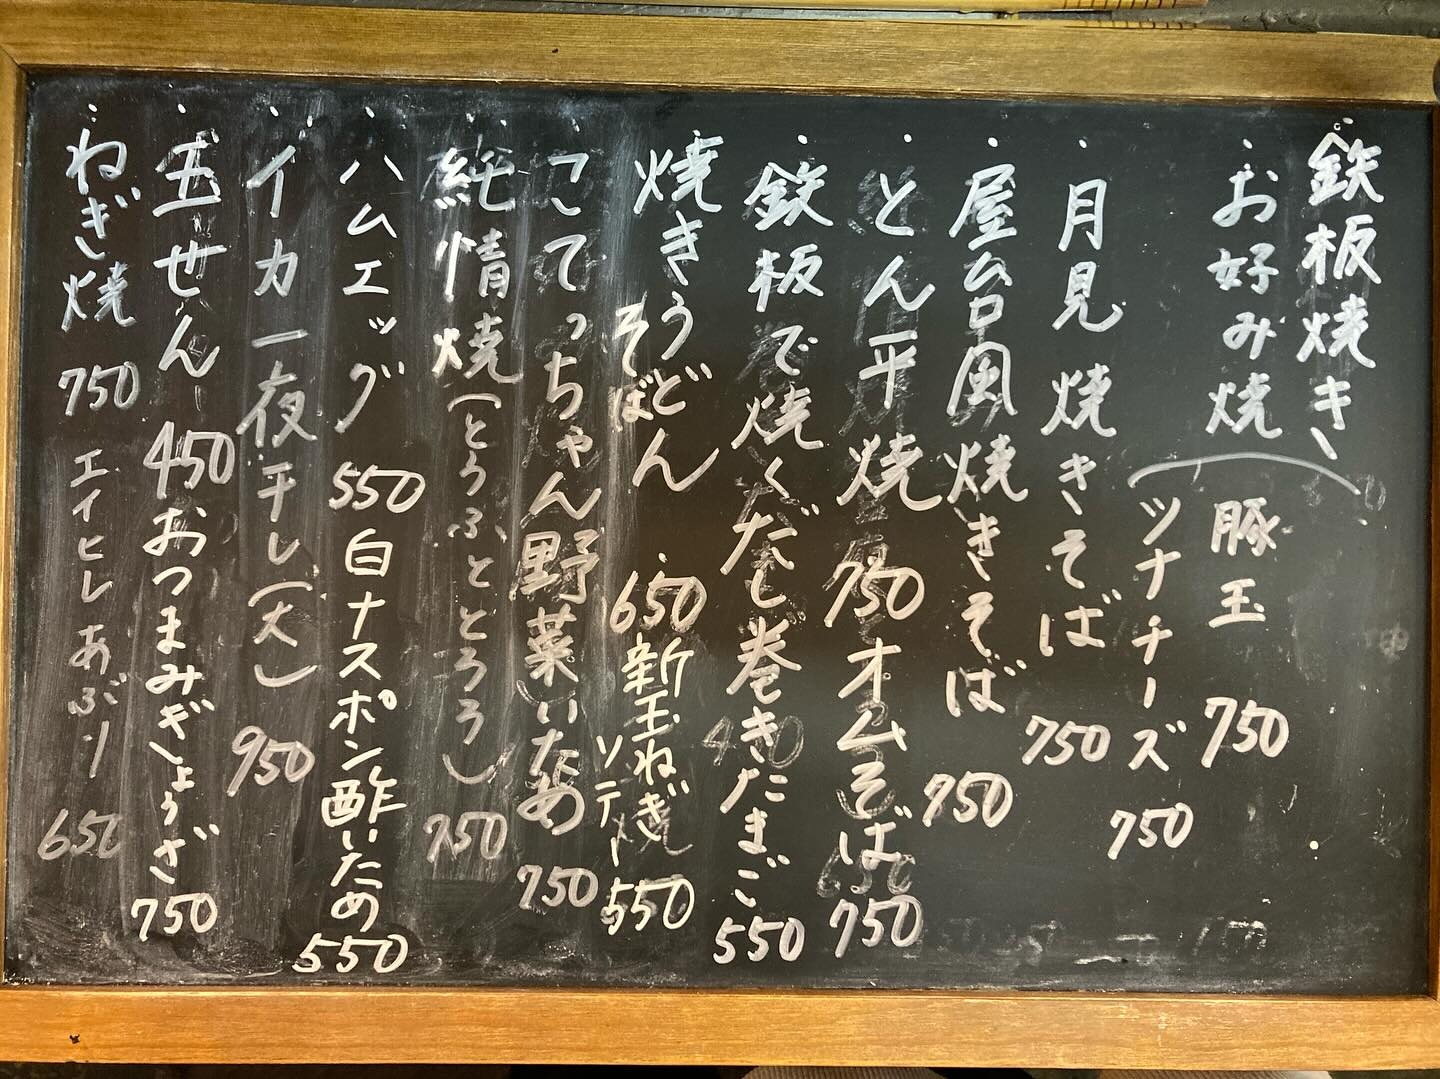 鉄板焼き
・お好み焼 豚玉 750
ツナチーズ 750
・月見焼きそば 750
・屋台風焼きそば 750
・とん平焼 750 オムそば 750
・鉄板で焼くだし巻きたまご 550
・焼きうどん 650 新玉ねぎ 550
そば ソテー
・こてっちゃん野菜いため 750
・純情焼(とうふととろろ) 750
・ハムエッグ 550 白ナスポン酢いため 550
・イカ一夜干し(大) 950
・玉せん 450 おつまみぎょうざ 750
・ねぎ焼 750 エイヒレあぶり 650